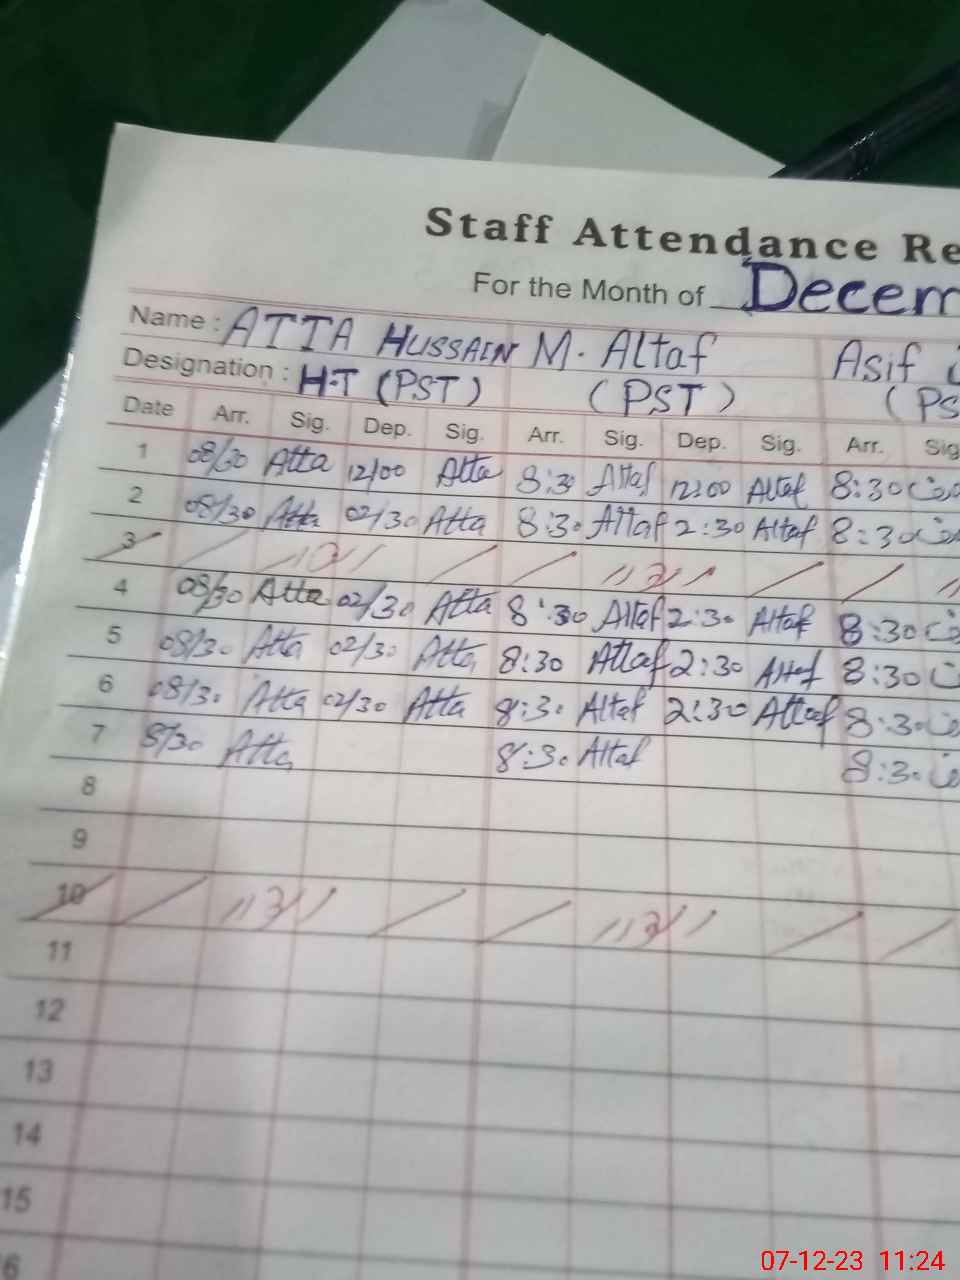 Staff Attendance Re
For the Month of Decem
Name : ATTA HUSSAIN M. Altaf Asif
Designation : H.T (PST) (PST) (PS
Date Arr. Sig. Dep. Sig. Arr. Sig. Dep. Sig. Arr. Sig
1 08/30 Atta 12/00 Atta 8:30 Altaf 12:00 Altaf 8:30
2 08/30 Atta 02/30 Atta 8:30 Altaf 2:30 Altaf 8:30
3
4 08/30 Atta 02/30 Atta 8:30 Altaf 2:30 Altaf 8:30
5 08/30 Atta 02/30 Atta 8:30 Altaf 2:30 Altaf 8:30
6 08/30 Atta 02/30 Atta 8:30 Altaf 2:30 Altaf 8:30
7 8/30 Atta 8:30 Altaf 8:30
8
9
10
11
12
13
14
15
6
07-12-23 11:24